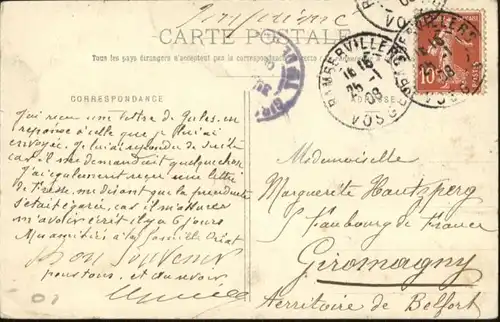 Imprimé
CARTE POSTALE
Tous les pays étrangers n'acceptent pas la correspondance
CORRESPONDANCE
RAMBERVILLERS
16 15
25 -1
08
VOSGES
10
J'ai reçu une lettre de Jules en
réponse à celle que je lui ai
envoyée. Je lui ai répondu de suite
car il me demandait quelque chose
J'ai également reçu une lettre
de Thérèse me disant que la précédente
s'était égarée, car il m'assure
m'avoir écrit il y a 6 jours
Mes amitiés à la famille
Bon Souvenir
pour tous, et au revoir
Mademoiselle
Marguerite Hautzperg
Faubourg de France
Giromagny
Territoire de Belfort